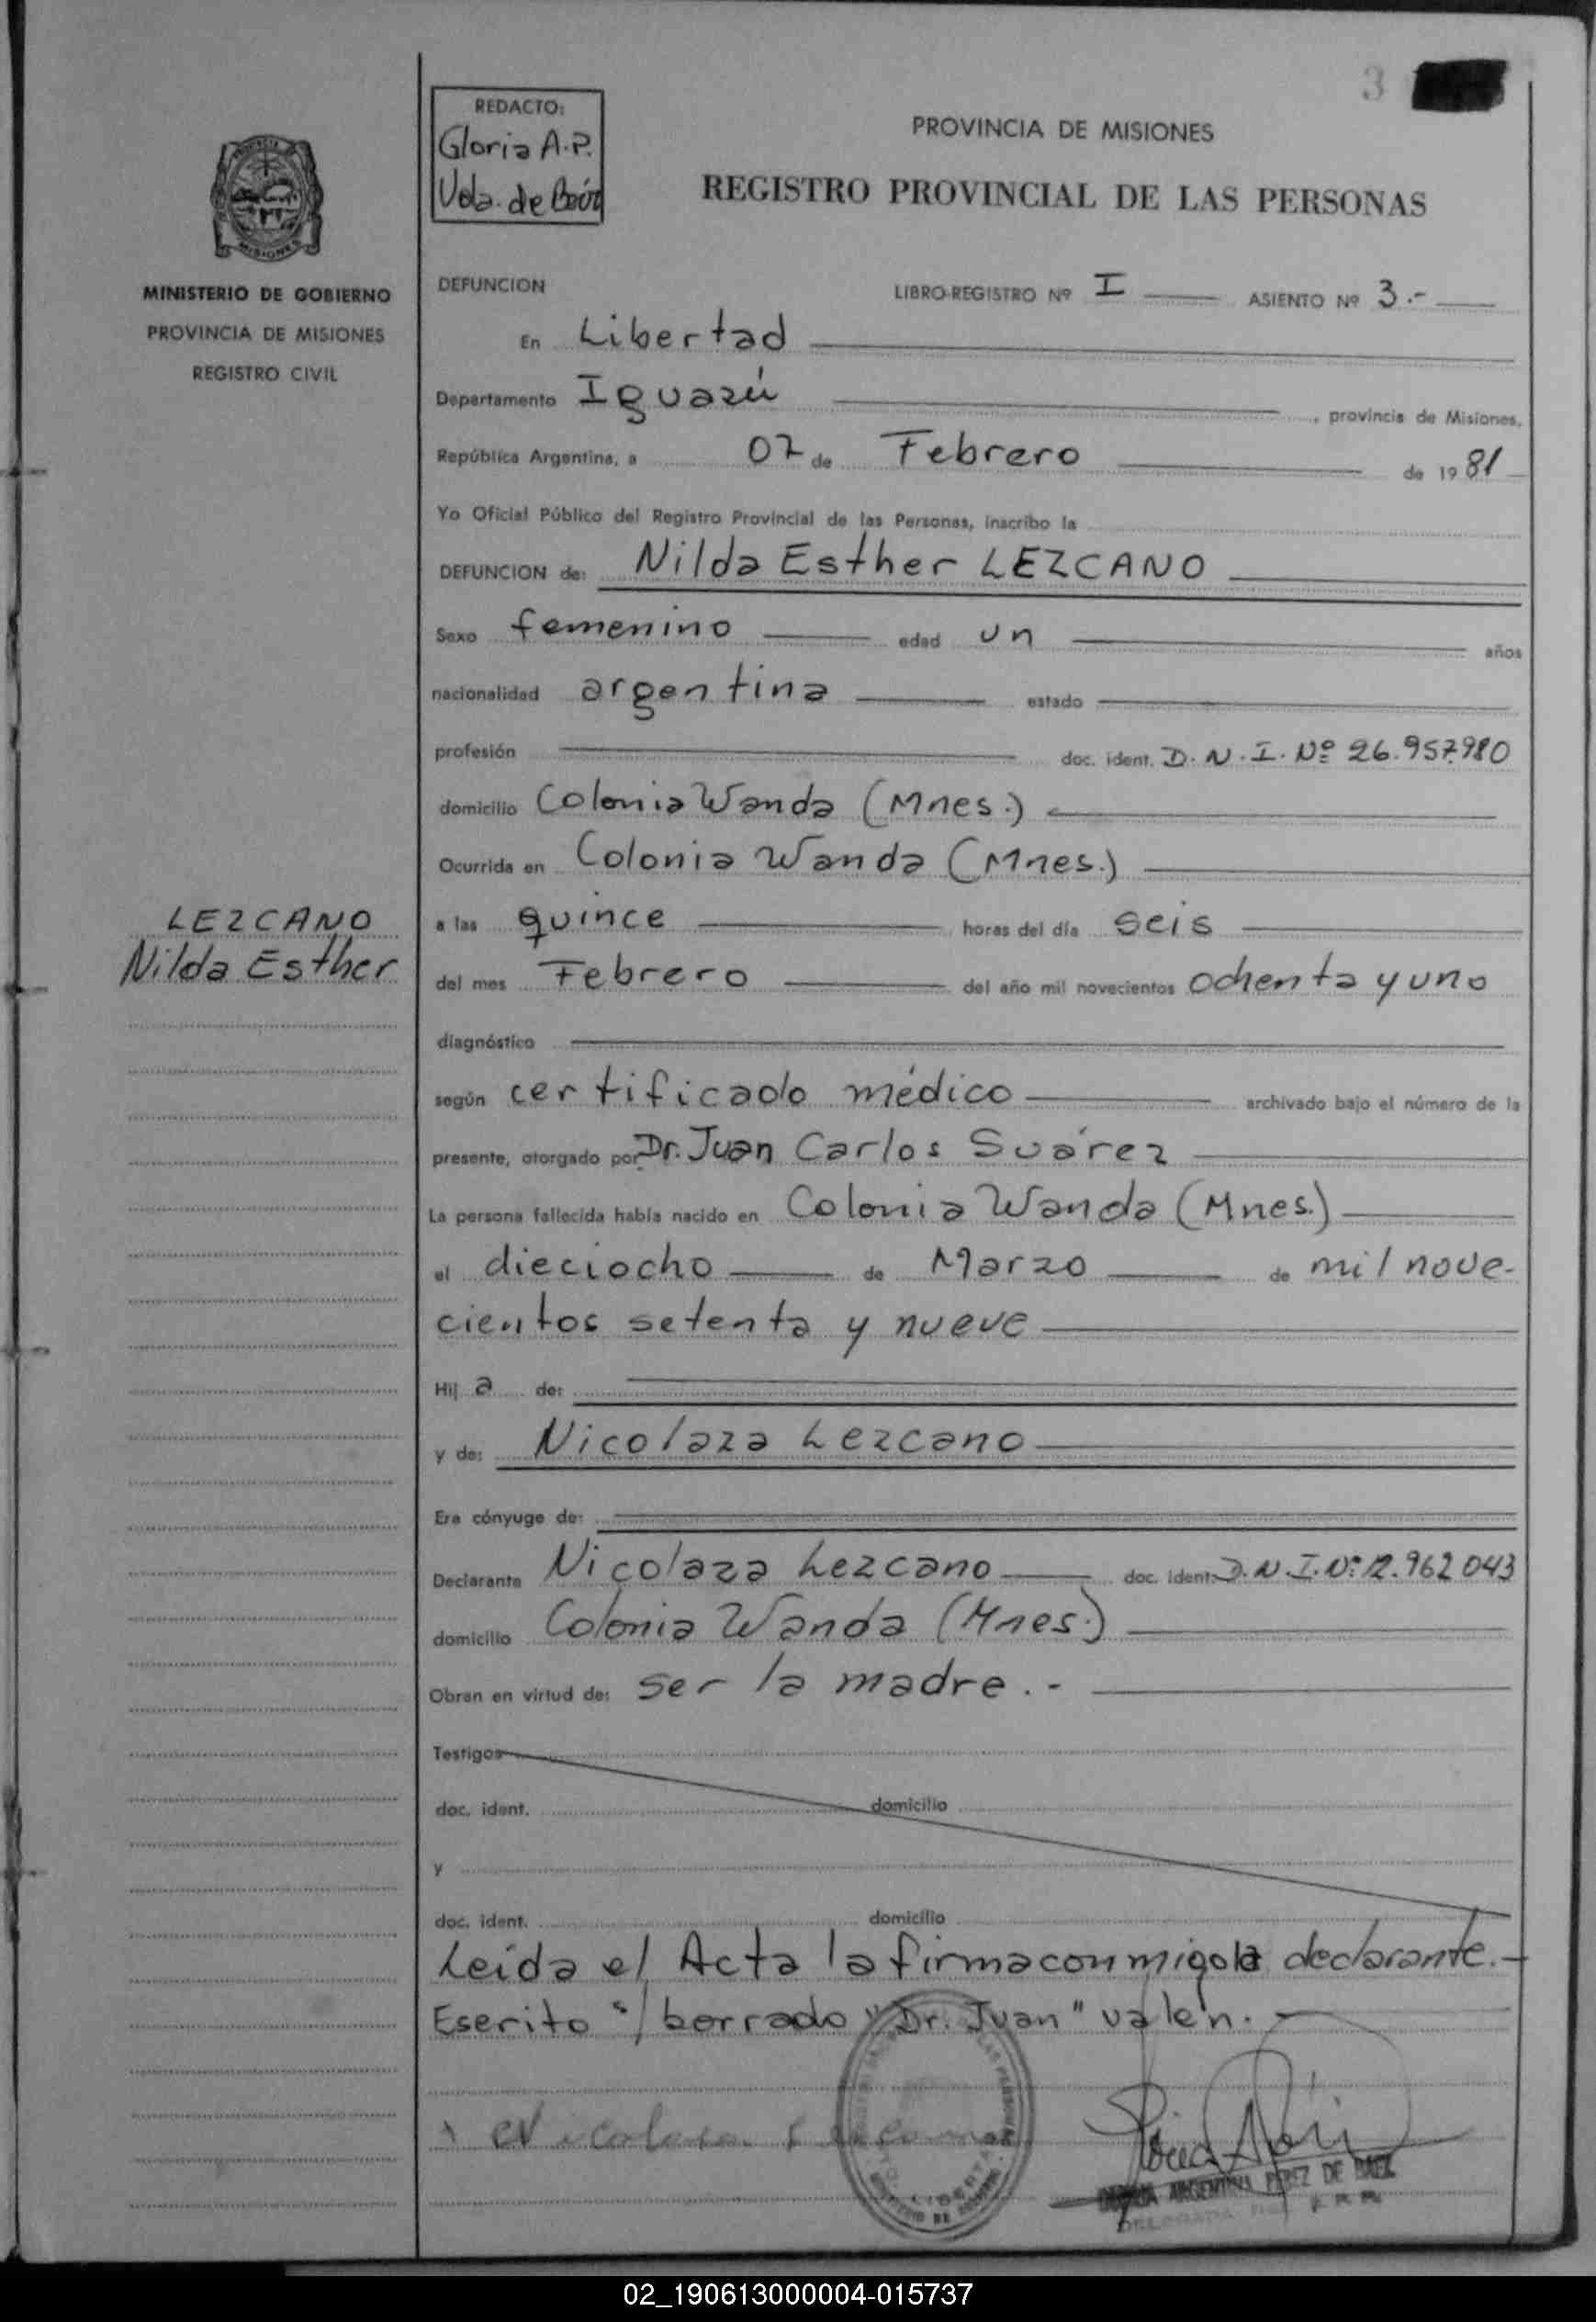 3
REDACTO:
Gloria A.P.
Vda. de Baéz
PROVINCIA DE MISIONES
REGISTRO PROVINCIAL DE LAS PERSONAS
MISIONES
MINISTERIO DE GOBIERNO
PROVINCIA DE MISIONES
REGISTRO CIVIL
DEFUNCION LIBRO-REGISTRO Nº I ASIENTO Nº 3.-
En Libertad
Departamento Iguazú, provincia de Misiones,
República Argentina, a 07 de Febrero de 1981
Yo Oficial Público del Registro Provincial de las Personas, inscribo la
DEFUNCION de: Nilda Esther LEZCANO
Sexo femenino edad un años
nacionalidad argentina estado
profesión doc. ident. D.N.I. Nº 26.957.980
domicilio Colonia Wanda (Mnes.)
Ocurrida en Colonia Wanda (Mnes.)
LEZCANO
Nilda Esther
a las quince horas del día seis
del mes Febrero del año mil novecientos ochenta y uno
diagnóstico
según certificado médico archivado bajo el número de la
presente, otorgado por Dr. Juan Carlos Suárez
La persona fallecida había nacido en Colonia Wanda (Mnes.)
el dieciocho de Marzo de mil nove-
cientos setenta y nueve
Hij a de:
y de: Nicolaza Lezcano
Era cónyuge de:
Declarante Nicolaza Lezcano doc. ident. D.N.I. Nº 12.962.043
domicilio Colonia Wanda (Mnes.)
Obran en virtud de: ser la madre.-
Testigos
doc. ident. domicilio
y
doc. ident. domicilio
Leída el Acta la firma conmigo la declarante.-
Escrito "s/ borrado "Dr. Juan" valen.
Nicolasa
ARGENTINA PEREZ DE BAEZ
02_190613000004-015737